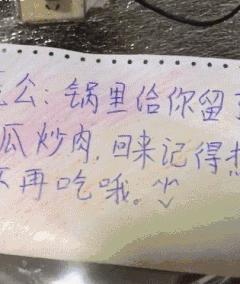 公：锅里给你留
瓜炒肉，回来记得
再吃哦。^v^